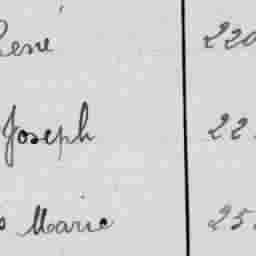 René 220
Joseph 22
Marie 25